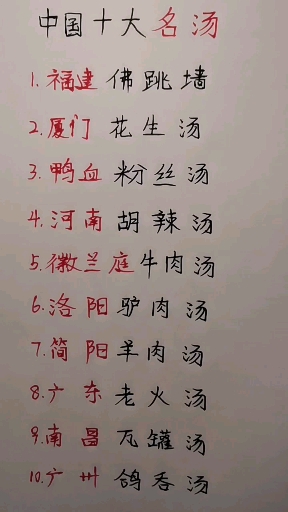 中国十大名汤
1.福建佛跳墙
2.厦门花生汤
3.鸭血粉丝汤
4.河南胡辣汤
5.徽兰庭牛肉汤
6.洛阳驴肉汤
7.简阳羊肉汤
8.广东老火汤
9.南昌瓦罐汤
10.广州鸽吞汤